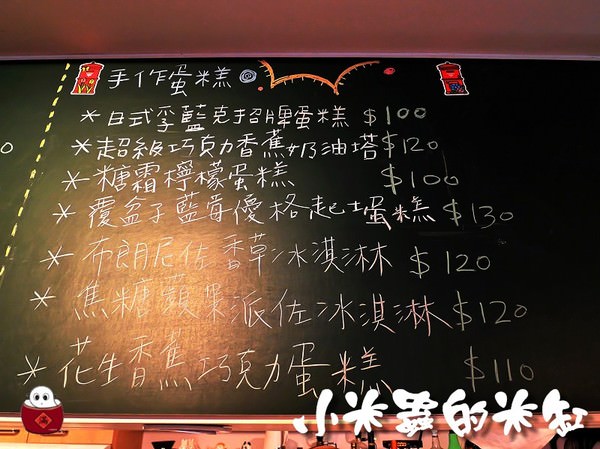 手作蛋糕
*日式孚藍克招牌蛋糕 $100
*超級巧克力香蕉奶油塔 $120
*糖霜檸檬蛋糕 $100
*覆盆子藍莓優格起士蛋糕 $130
*布朗尼佐香草冰淇淋 $120
*焦糖蘋果派佐冰淇淋 $120
*花生香蕉巧克力蛋糕 $110
小米蟲的米缸